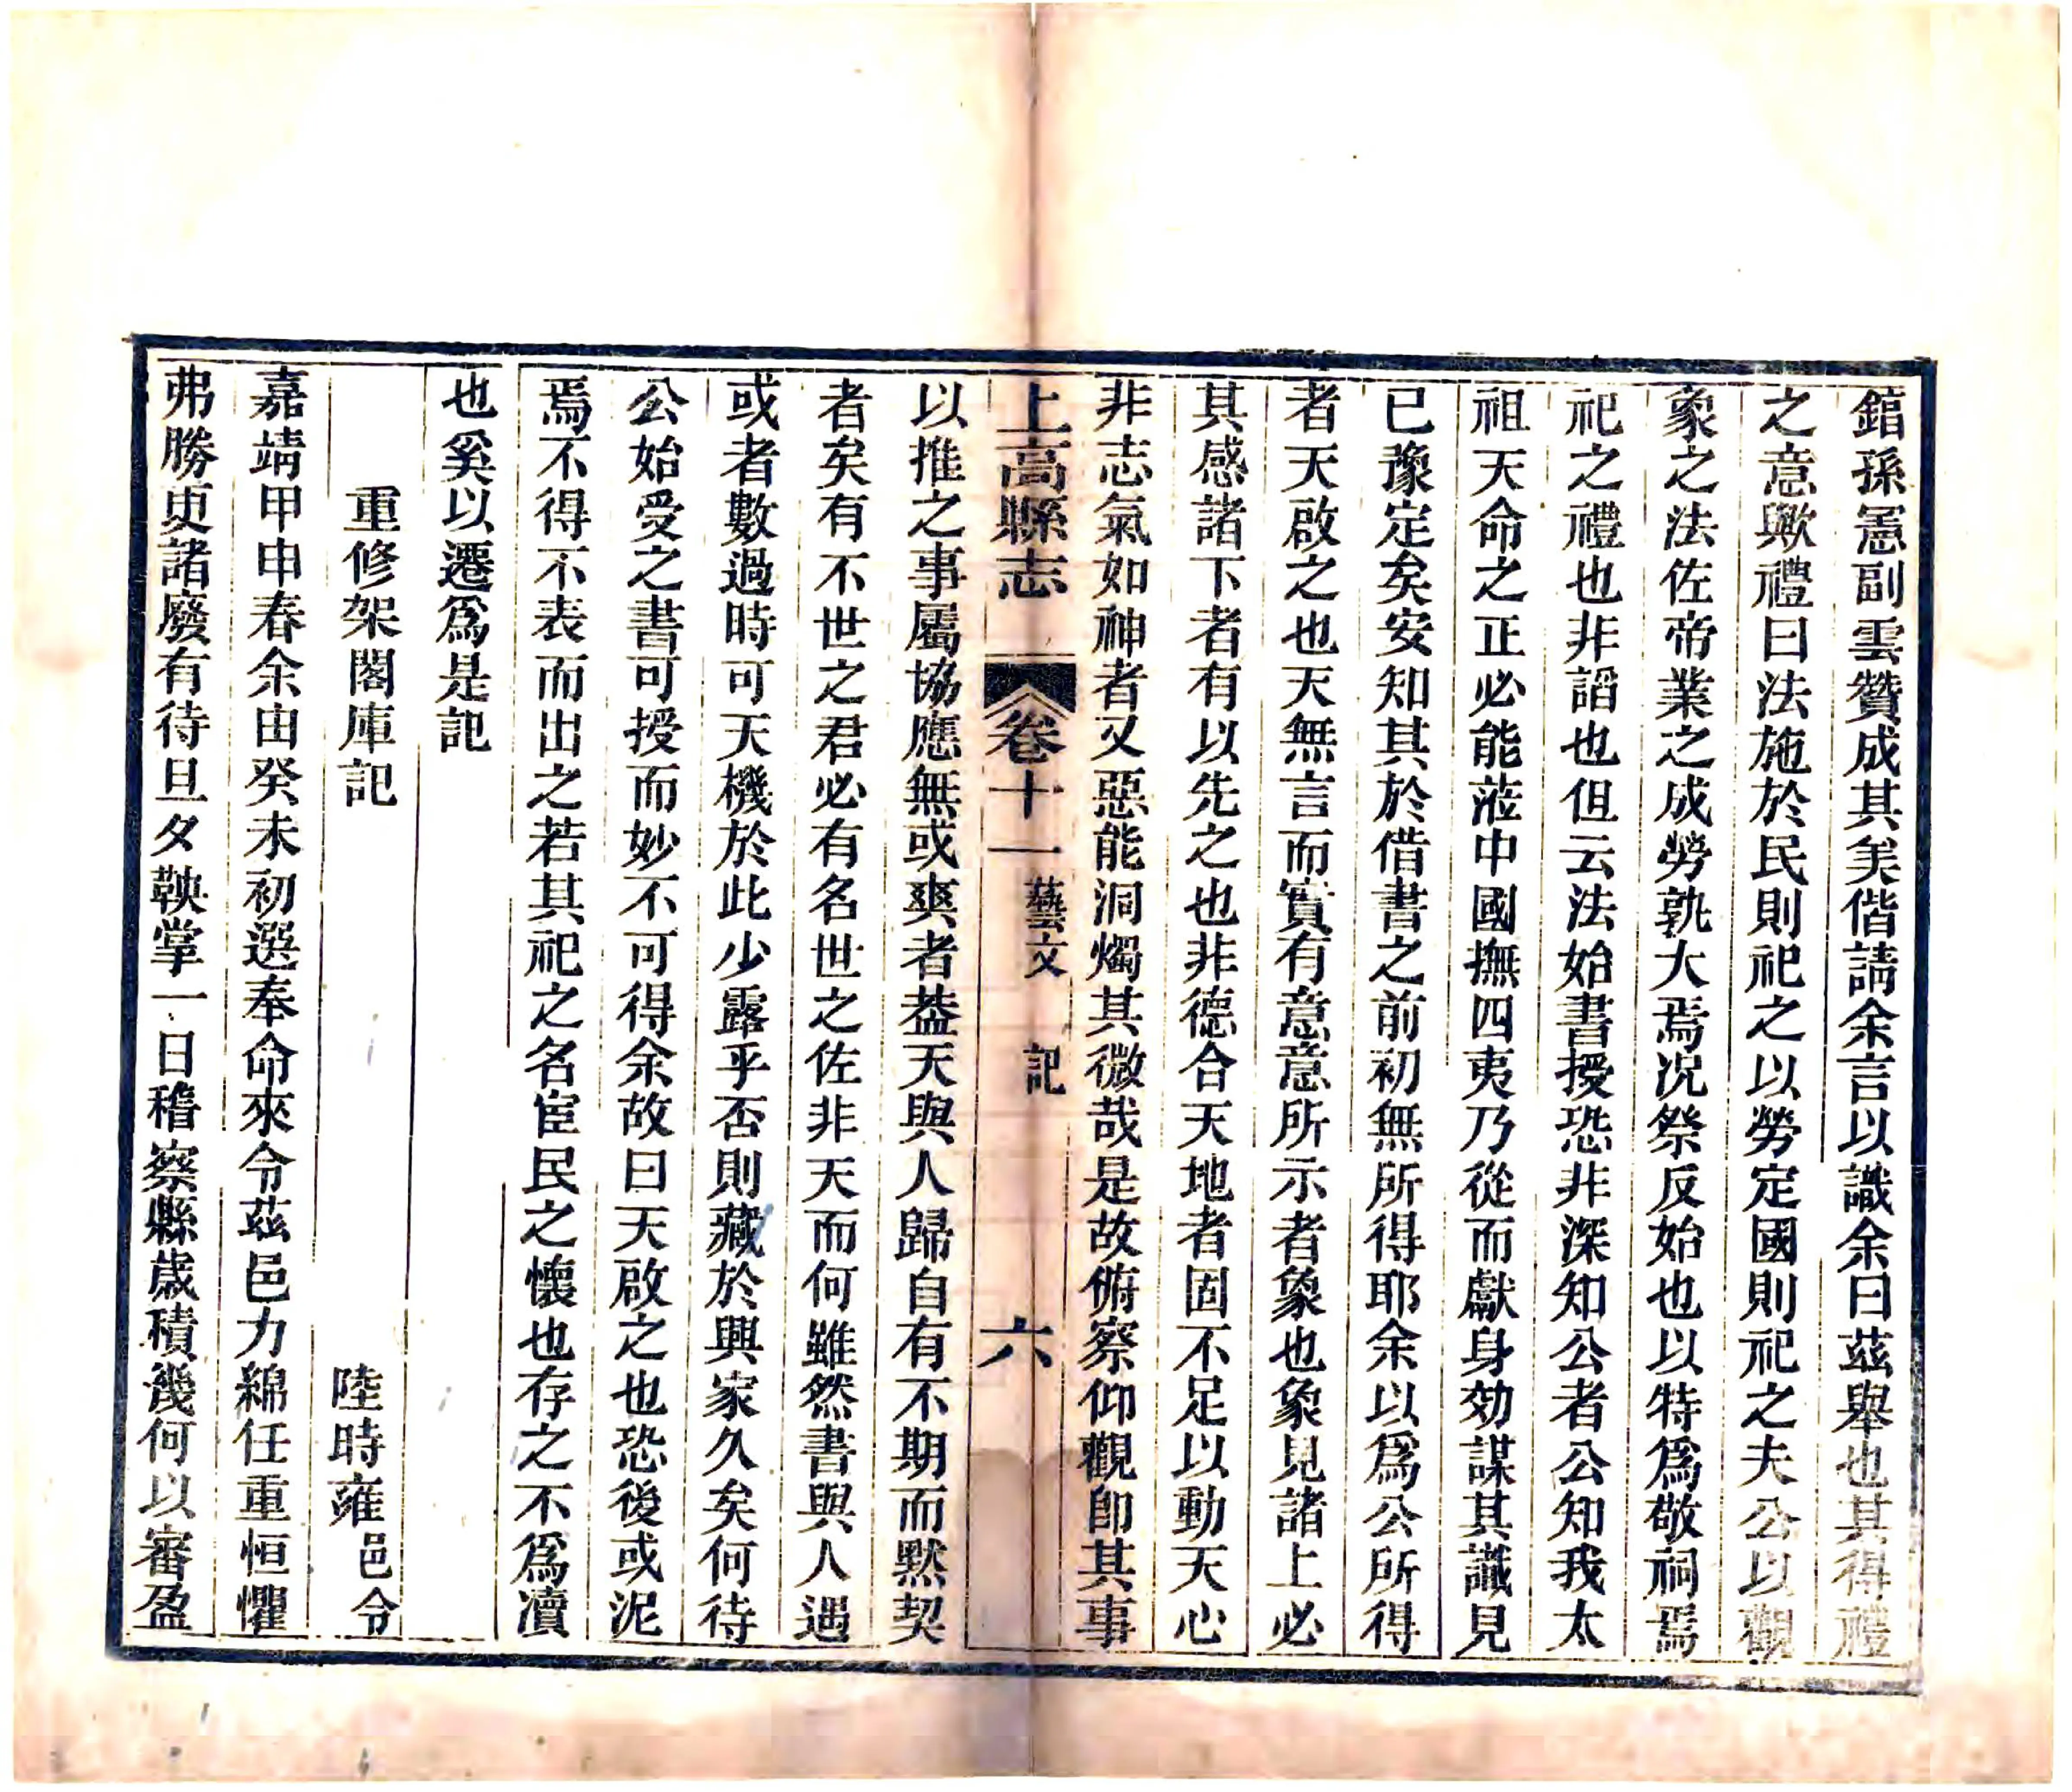 錧孫憲副雲贊成其矣偕請余言以識余曰茲舉也其得禮
之意歟禮曰法施於民則祀之以勞定國則祀之夫公以觀
象之法佐帝業之成勞孰大焉况祭反始也以特爲敬祠焉
祀之禮也非謟也但云法始書授恐非深知公者公知我太
祖天命之正必能蒞中國撫四夷乃從而獻身効謀其識見
已豫定矣安知其於借書之前初無所得耶余以爲公所得
者天啟之也天無言而實有意意所示者象也象見諸上必
其感諸下者有以先之也非德合天地者固不足以動天心
非志氣如神者又惡能洞燭其微哉是故俯察仰觀卽其事
上高縣志 卷十一 藝文 記 六
以推之事屬協應無或爽者葢天與人歸自有不期而默契
者矣有不世之君必有名世之佐非天而何雖然書與人遇
或者數過時可天機於此少露乎否則藏於興家久矣何待
公始受之書可授而妙不可得余故曰天啟之也恐後或泥
焉不得不表而出之若其祀之名宦民之懷也存之不爲瀆
也奚以遷爲是記
重修架閣庫記 陸時雍邑令
嘉靖甲申春余由癸未初選奉命來令茲邑力綿任重恒懼
弗勝更諸廢有待旦夕鞅掌一日稽察縣歲積幾何以審盈